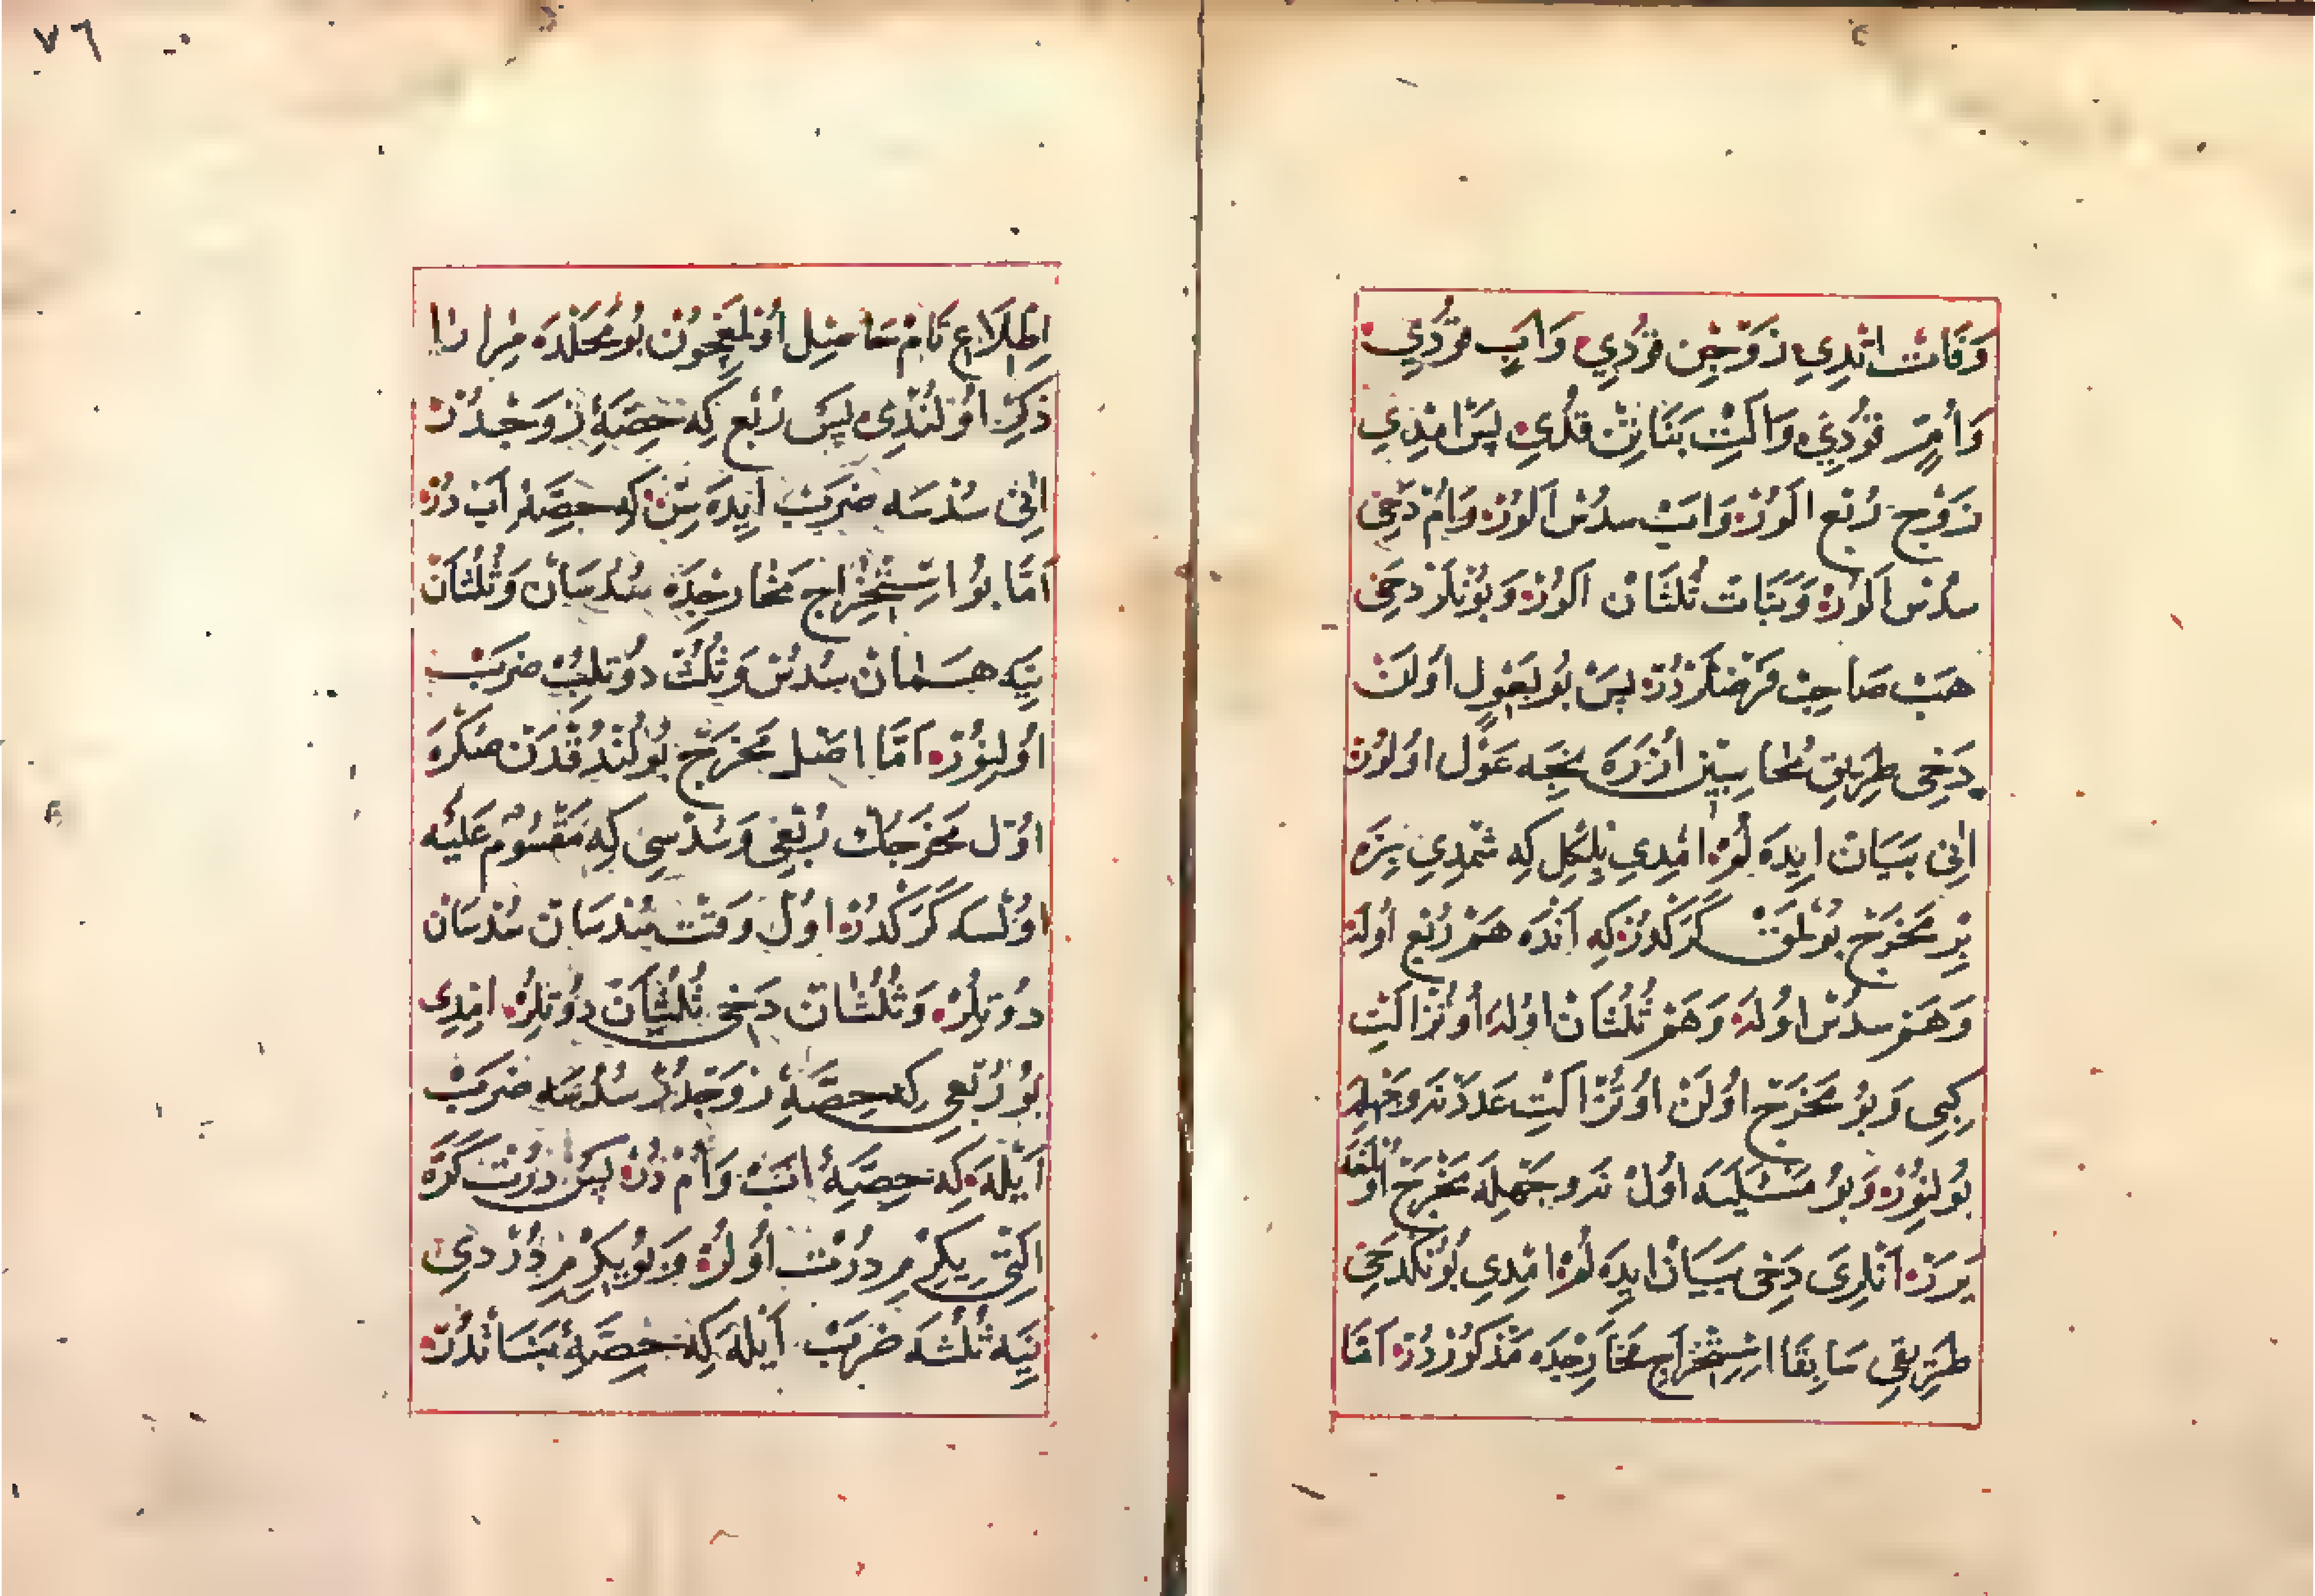 وَفَاتْ اتْدِي زَوْجِنْ قُودِي وَابِ قُودِي
وَأُمِّنْ قُودِي وَاكِتْ بَنَاتِنْ قُودِي پَسْ امْدِي
زَوْجْ رُبْعْ الُورْ وَابْ سدُسْ الُورْ وَامْ دَخِي
سدُسْ الُورْ وَبَنَاتْ ثُلُثَانْ الُورْ وَبُونْلَرْ دَخِي
هَپْ صَاحِبْ فَرْضْلَرْدُرْ پَسْ بُو عَوْلْ اُولَنْ
دَخِي طَرِيقِ مُحَاسِبِينْ اُزَرَه نِجَه عَوْل اُولُورْ
انِي بَيَانْ ايدَه لُومْ امْدِي بِلْكِلْ كِه شِمْدِي بِزَه
بِرْ مَخْرَجْ بُولْمَقْ كَرَكْدُرْ كِه اَنْدَه هَمْ رُبْعْ اُولَه
وَهَمْ سدُسْ اُولَه وَهَمْ ثُلُثَانْ اُولَه اُوتُزْ اكِتْ
كِبِي وَبُو مَخْرَجْ اُولَنْ اُوتُزْ اكِتْ عَدَدْ نَه وَجْهِلَه
بُولِنُورْ وَبُو مَسْئَلَيَه اُولْ نَه وَجْهِلَه مَخْرَجْ اُولْمَغَه
يَرَرْ انْلَرِي دَخِي بَيَانْ ايدَه لُومْ امْدِي بُونُكْ دَخِي
طَرِيقِي سَابِقَا اسْتِخْرَاجِ مَخَارِجْدَه مَذْكُورْدُرْ اَمَّا
٧٦
اِطِّلَاعِ تَامْ حَاصِلْ اُولْمَغِچُونْ بُو مَحَلْدَه مِرَارًا
ذِكِرْ اُولُنْدِي پَسْ رُبْعْ كِه حِصَّهٔ زَوْجْدُرْ
انِي سُدْسَه ضَرَبْ ايدَه سِنْ كِه حِصَّهٔ اَبْ دُرْ
اَمَّا بُو اسْتِخْرَاجِ مَخَارِجْدَه سُدُسَانْ وَثُلُثَانْ
يَنَه هَمَانْ سُدُسْ وَثُلُثْ دُوتِلُبْ ضَرَبْ
اُولِنُورْ اَمَّا اصْلِ مَخْرَجْ بُولُنْدُقْدَنْ صَكْرَه
اُولْ مَخْرَجُكْ رُبْعِي وَسُدْسِي كِه مَقْسُومٌ عَلَيْه
اُولْسَه كَرَكْدُرْ اُولْ وَقْتْ سُدْسَانْ سُدْسَانْ
دُوتِلُرْ وَثُلُثَانْ دَخِي ثُلُثَانْ دُوتِلُرْ امْدِي
بُو رُبْعِي كِه حِصَّهٔ زَوْجْدُرْ سُدُسَه ضَرَبْ
اَيْلَه كِه حِصَّهٔ ابْ وَامْ دُرْ پَسْ دُورْتْ كَرَّه
الْتِي يِكِرْمِ دُرْتْ اُولُرْ وَبُو يِكِرْمِ دُرْدِي
يَنَه ثُلُثَه ضَرَبْ اَيْلَه كِه حِصَّهٔ بَنَاتْدُرْ